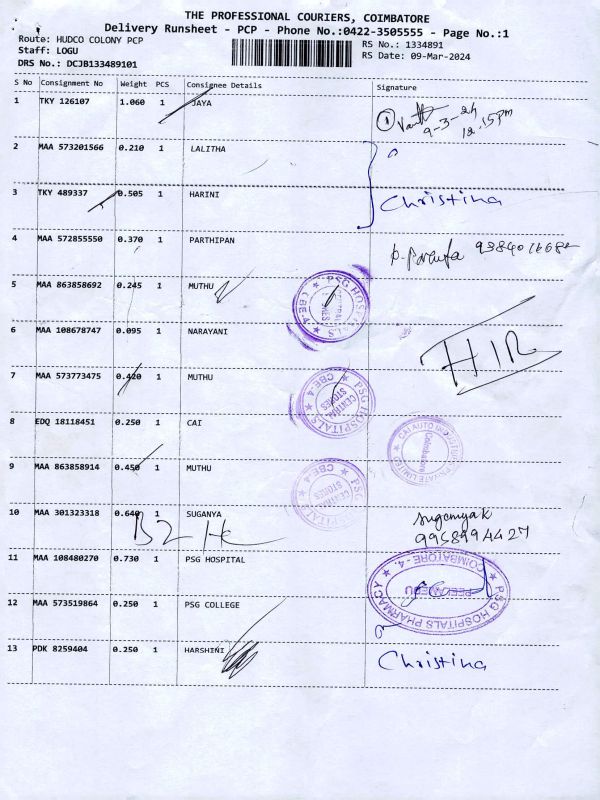 THE PROFESSIONAL COURIERS, COIMBATORE
Delivery Runsheet - PCP - Phone No.:0422-3505555 - Page No.:1
Route: HUDCO COLONY PCP
RS No.: 1334891
Staff: LOGU
RS Date: 09-Mar-2024
DRS No.: DCJB133489101
S No Consignment No Weight PCS Consignee Details Signature
1 TKY 126107 1.060 1 JAYA
① 9-3-24
12.15pm
2 MAA 573201566 0.210 1 LALITHA
3 TKY 489337 0.505 1 HARINI Christina
4 MAA 572855550 0.370 1 PARTHIPAN
5 MAA 863858692 0.245 1 MUTHU
PSG HOSPITALS CENTRAL STORES CBE-4
6 MAA 108678747 0.095 1 NARAYANI
7 MAA 573773475 0.420 1 MUTHU
PSG HOSPITALS CENTRAL STORES CBE-4
8 EDQ 18118451 0.250 1 CAI
Coimbatore
9 MAA 863858914 0.450 1 MUTHU
PSG HOSPITALS CENTRAL STORES CBE-4
10 MAA 301323318 0.640 1 SUGANYA
9958994427
11 MAA 108480270 0.730 1 PSG HOSPITAL
PSG HOSPITALS PHARMACY COIMBATORE - 4.
12 MAA 573519864 0.250 1 PSG COLLEGE
13 PDK 8259404 0.250 1 HARSHINI Christina